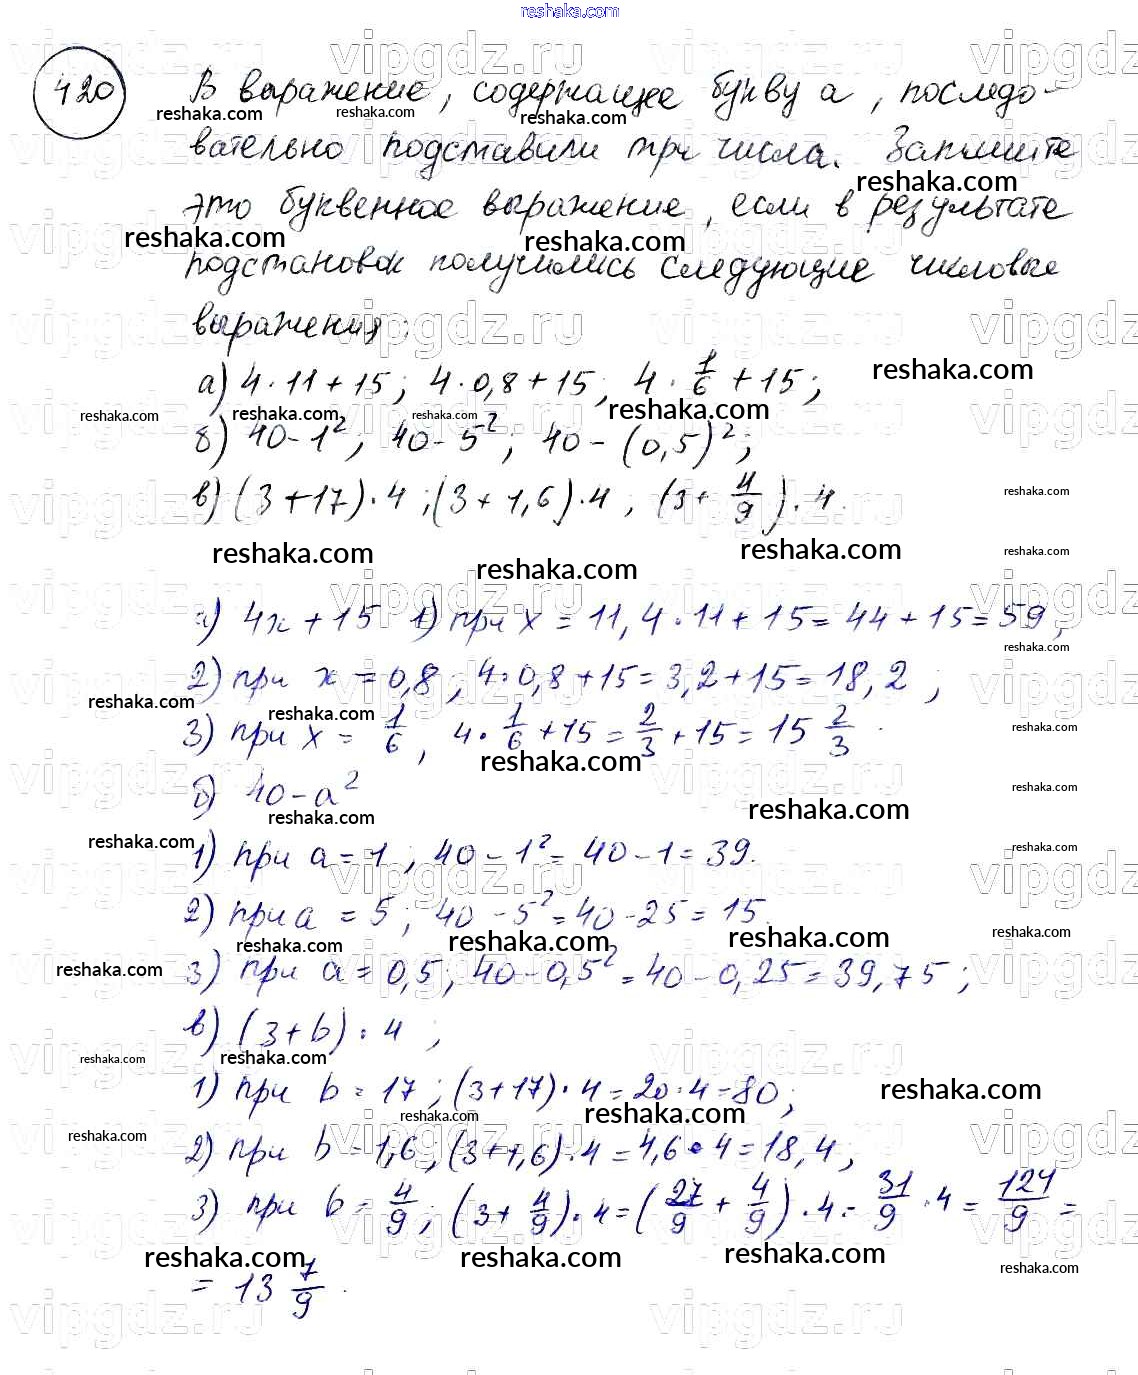 reshaka.com
420 В выражение, содержащее букву а, последо-
вательно подставили три числа. Запишите
это буквенное выражение, если в результате
подстановок получились следующие числовые
выражения:
а) 4·11+15; 4·0,8+15; 4·1/6+15;
б) 40-1²; 40-5²; 40-(0,5)²;
в) (3+17)·4; (3+1,6)·4; (3+4/9)·4.
а) 4x+15 1) при x=11, 4·11+15=44+15=59;
2) при x=0,8; 4·0,8+15=3,2+15=18,2;
3) при x=1/6, 4·1/6+15=2/3+15=15 2/3.
б) 40-a²
1) при a=1; 40-1²=40-1=39.
2) при a=5; 40-5²=40-25=15.
3) при a=0,5; 40-0,5²=40-0,25=39,75;
в) (3+b)·4;
1) при b=17; (3+17)·4=20·4=80;
2) при b=1,6; (3+1,6)·4=4,6·4=18,4;
3) при b=4/9; (3+4/9)·4=(27/9+4/9)·4=31/9·4=124/9=
=13 7/9.
vipgdz.ru
reshaka.com